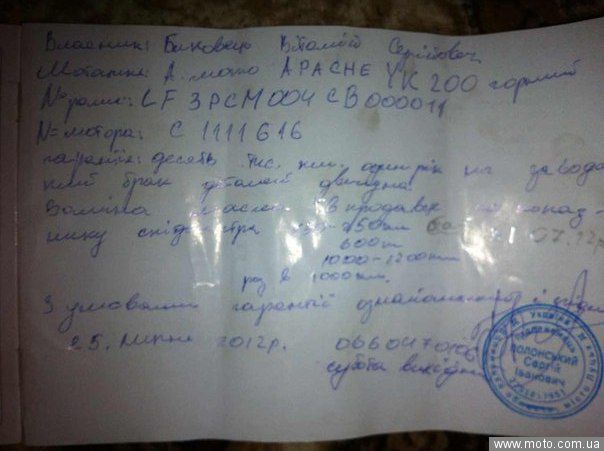 Власник: Биковець Віталій Сергійович
Мотоцикл: А. мото APACHE YK 200 чорний
№ рами: LF3PCM004CB000011
№ мотора: C 1111616
гарантія: десять тис. км. один рік на заводс
кий брак деталей двигуна
Заміна масла в продавця по показ-
нику спідометра 250км 07.12р
600км
1000-1200км
раз в 1000км.
З умовами гарантії ознайомлений і
25. липня 2012р. 0660470106
субота вихідний
Україна
ПОЛОНСЬКИЙ
Сергій
Іванович
www.moto.com.ua